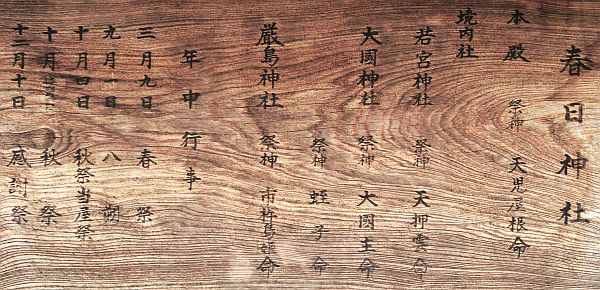 春日神社
本殿 祭神 天児屋根命
境内社
若宮神社 祭神 天押雲命
大國神社 祭神 大國主命
祭神 蛭子命
厳島神社 祭神 市杵島姫命
年中行事
三月九日 春祭
九月一日 八朔
十月四日 秋祭当屋祭
十月 秋祭
十二月十日 感謝祭